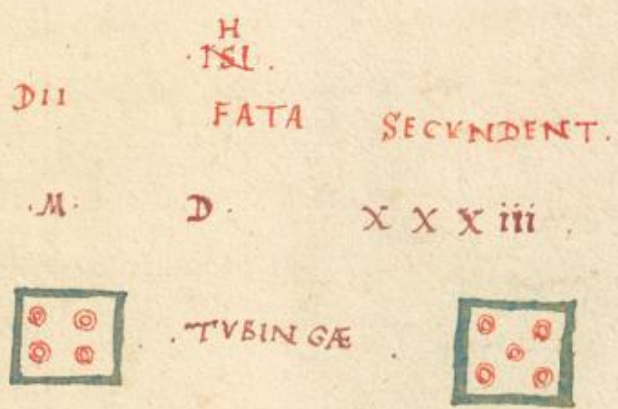 H
.ISI.
DII FATA SECVNDENT.
.M. D. X X X iii .
.TVBINGÆ .